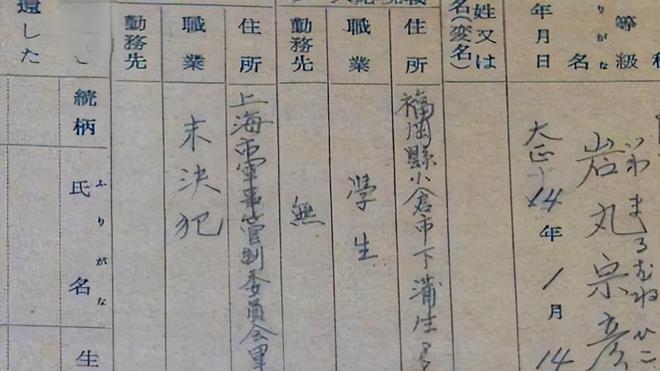 等級
りがな
いわまるむねひこ
名 岩丸宗彦
年月日 大正14年1月14
姓又は
名(変名)
住所 福岡縣小倉市下蒲生
職業 學生
勤務先 無
住所 上海市軍事管制委員会軍
職業 未決犯
勤務先
ふりがな
続柄 氏名 生
遺した